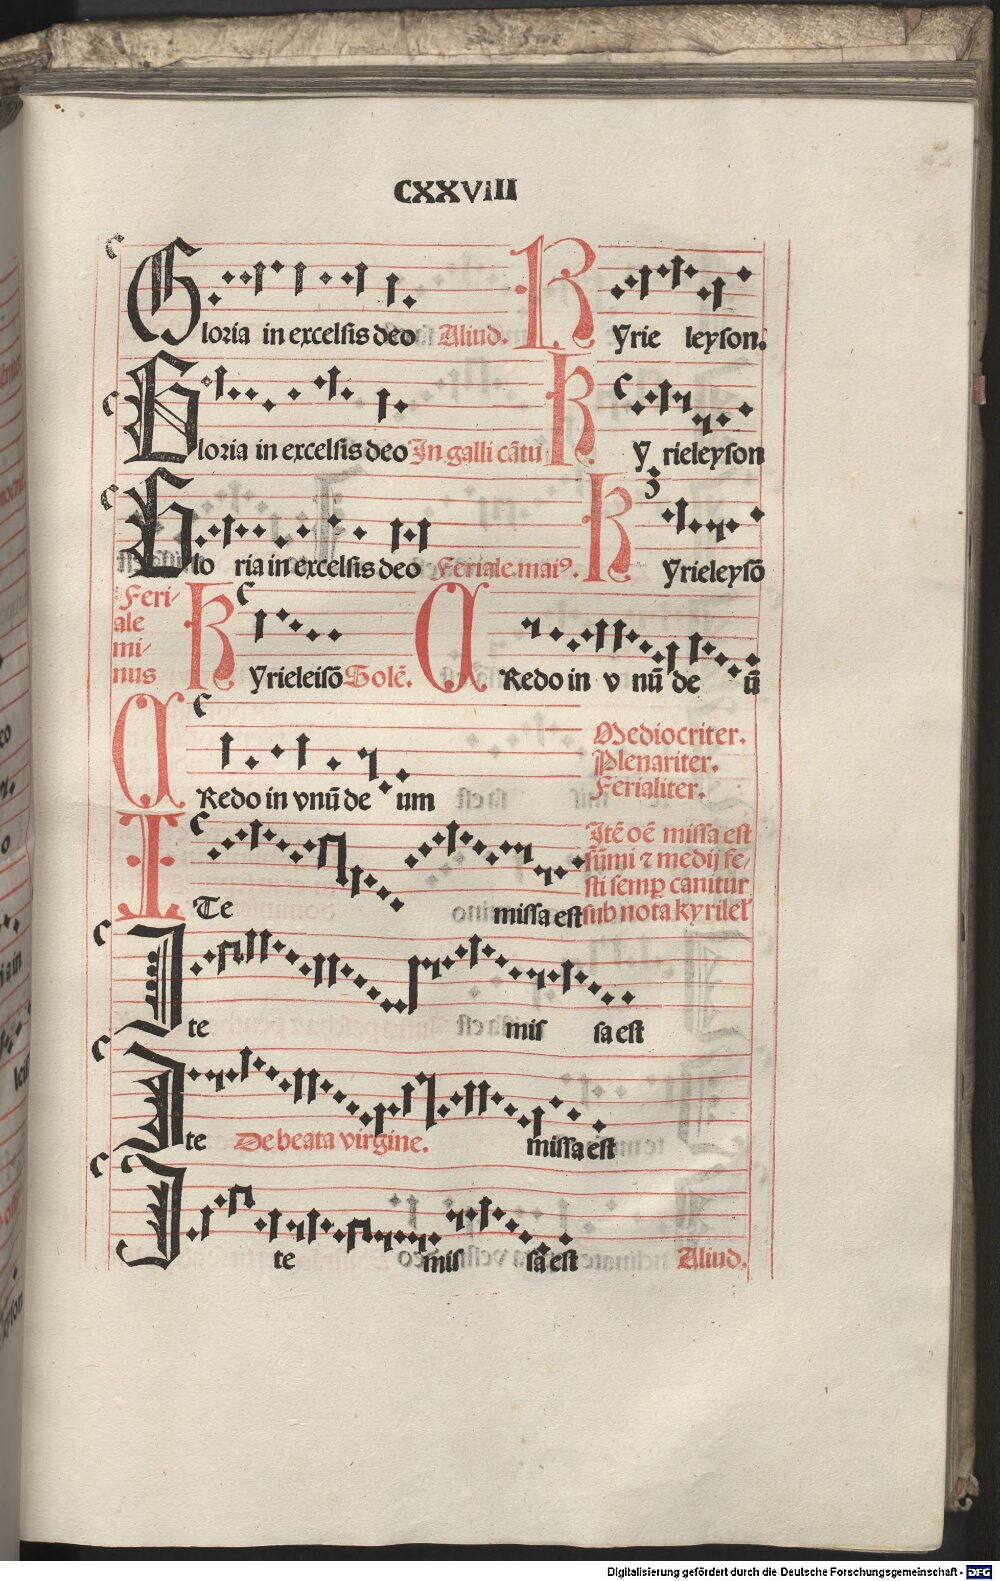 CXXVIII
Gloria in excelsis deo Aliud. Kyrie leyson.
Gloria in excelsis deo In galli cãtu Ky rieleyson
Glo ria in excelsis deo Feriale maiꝰ. Kyrieleysõ
Feri-
ale
mi-
nus
Kyrieleisõ Solẽ. CRedo in v nũ de ũ
CRedo in vnũ de um
Mediocriter.
Plenariter.
Ferialiter.
ITe missa est
Itẽ oẽ missa est
sũmi ⁊ medij fe-
sti semꝑ canitur
sub nota kyrilel
Ite mis sa est
Ite De beata virgine. missa est
I te mis sa est Aliud.
Digitalisierung gefördert durch die Deutsche Forschungsgemeinschaft - DFG